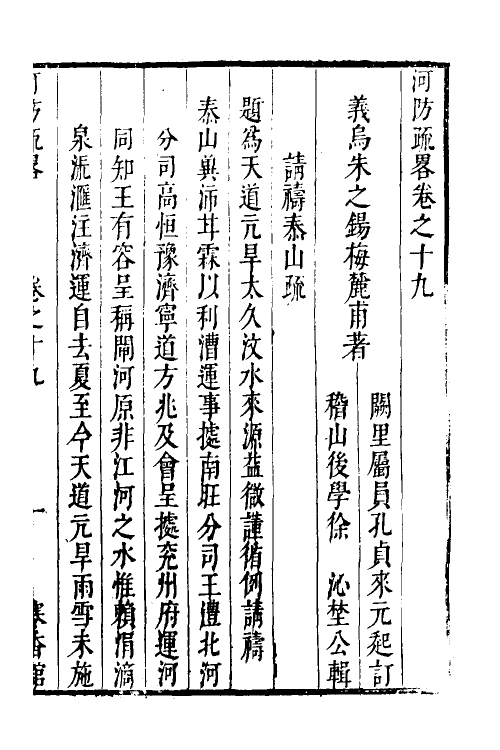 河防疏畧卷之十九
闕里屬員孔貞來元起訂
義烏朱之錫梅麓甫著
稽山後學徐　沁埜公輯
請禱泰山疏
題爲天道亢旱太久汶水來源益微謹循例請禱
泰山冀沛甘霖以利漕運事據南旺分司王澧北河
分司高恒豫濟寧道方兆及會呈據兖州府運河
同知王有容呈稱閘河原非江河之水惟賴涓滴
泉流滙注濟運自去夏至今天道亢旱雨雪未施
河防疏畧　卷之十九　一　寒香館